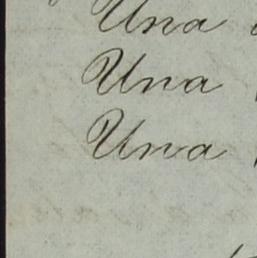 Una
Una
Una